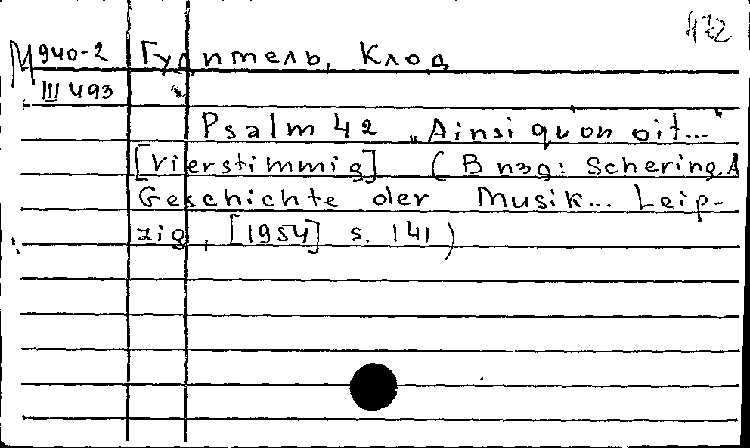 472
М 940-2 Гудимель, Клод
III 493
Psalm 42 „Ainsi qu'on oit..."
[Vierstimmig] (В изд: Schering.A
Geschichte der Musik... Leip-
zig, [1954] s. 141)